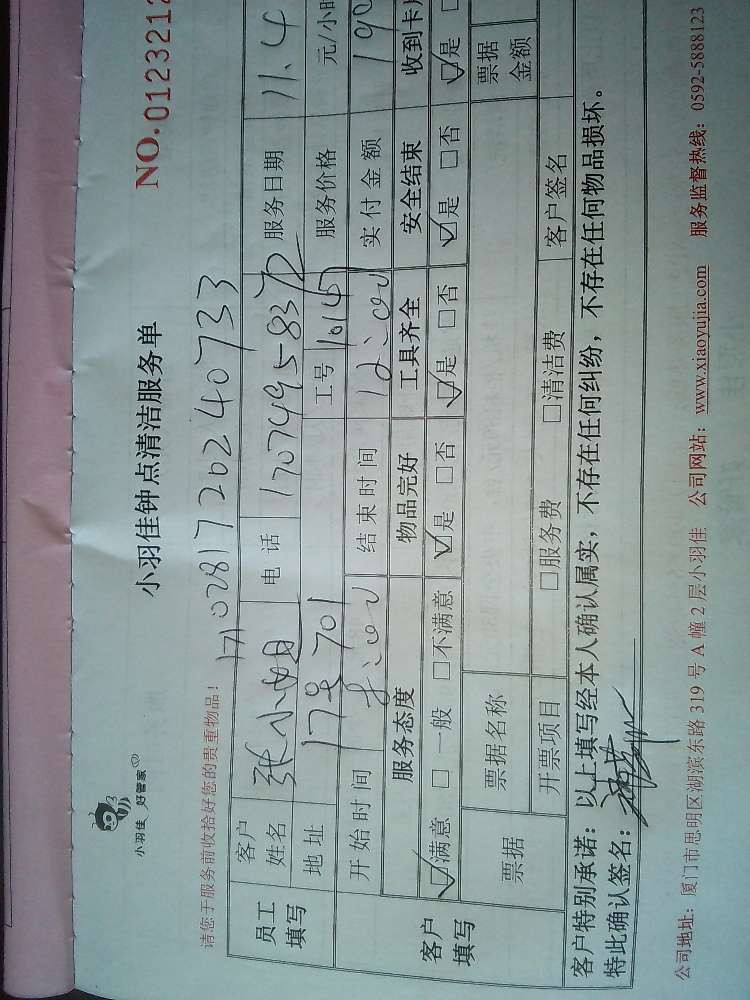 小羽佳 好管家
小羽佳钟点清洁服务单
NO.0123212
请您于服务前收拾好您的贵重物品！
1710281720240733
员工填写 客户姓名 张小姐 电话 服务日期 11.4
地址 17号701 工号 服务价格 元/小时
客户填写 开始时间 结束时间 12:00 实付金额 190
服务态度 物品完好 工具齐全 安全结束 收到卡片
☑满意 □一般 □不满意 ☑是 □否 ☑是 □否 ☑是 □否 ☑是
票据 票据名称 票据金额
开票项目 □服务费 □清洁费 客户签名
客户特别承诺：以上填写经本人确认属实，不存在任何纠纷，不存在任何物品损坏。
特此确认签名：
公司地址：厦门市思明区湖滨东路319号A幢2层小羽佳 公司网站：www.xiaoyujia.com 服务监督热线：0592-5888123